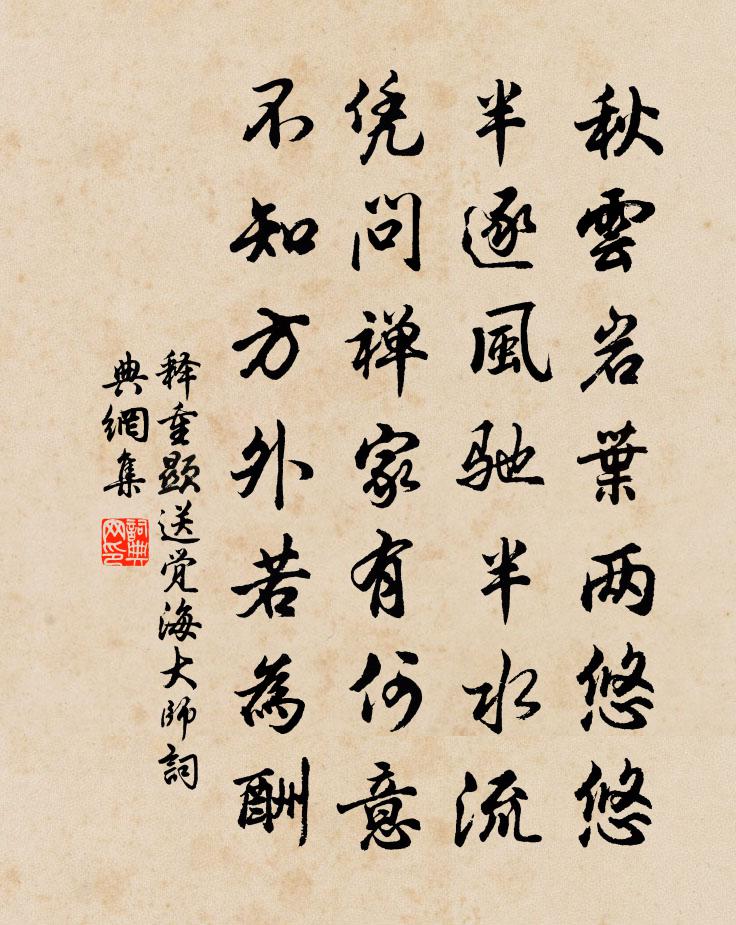 秋雲岩葉两悠悠
半逐風馳半水流
凭問禅家有何意
不知方外若為酬
释重顯送觉海大師詞
典網集
詞典
网印